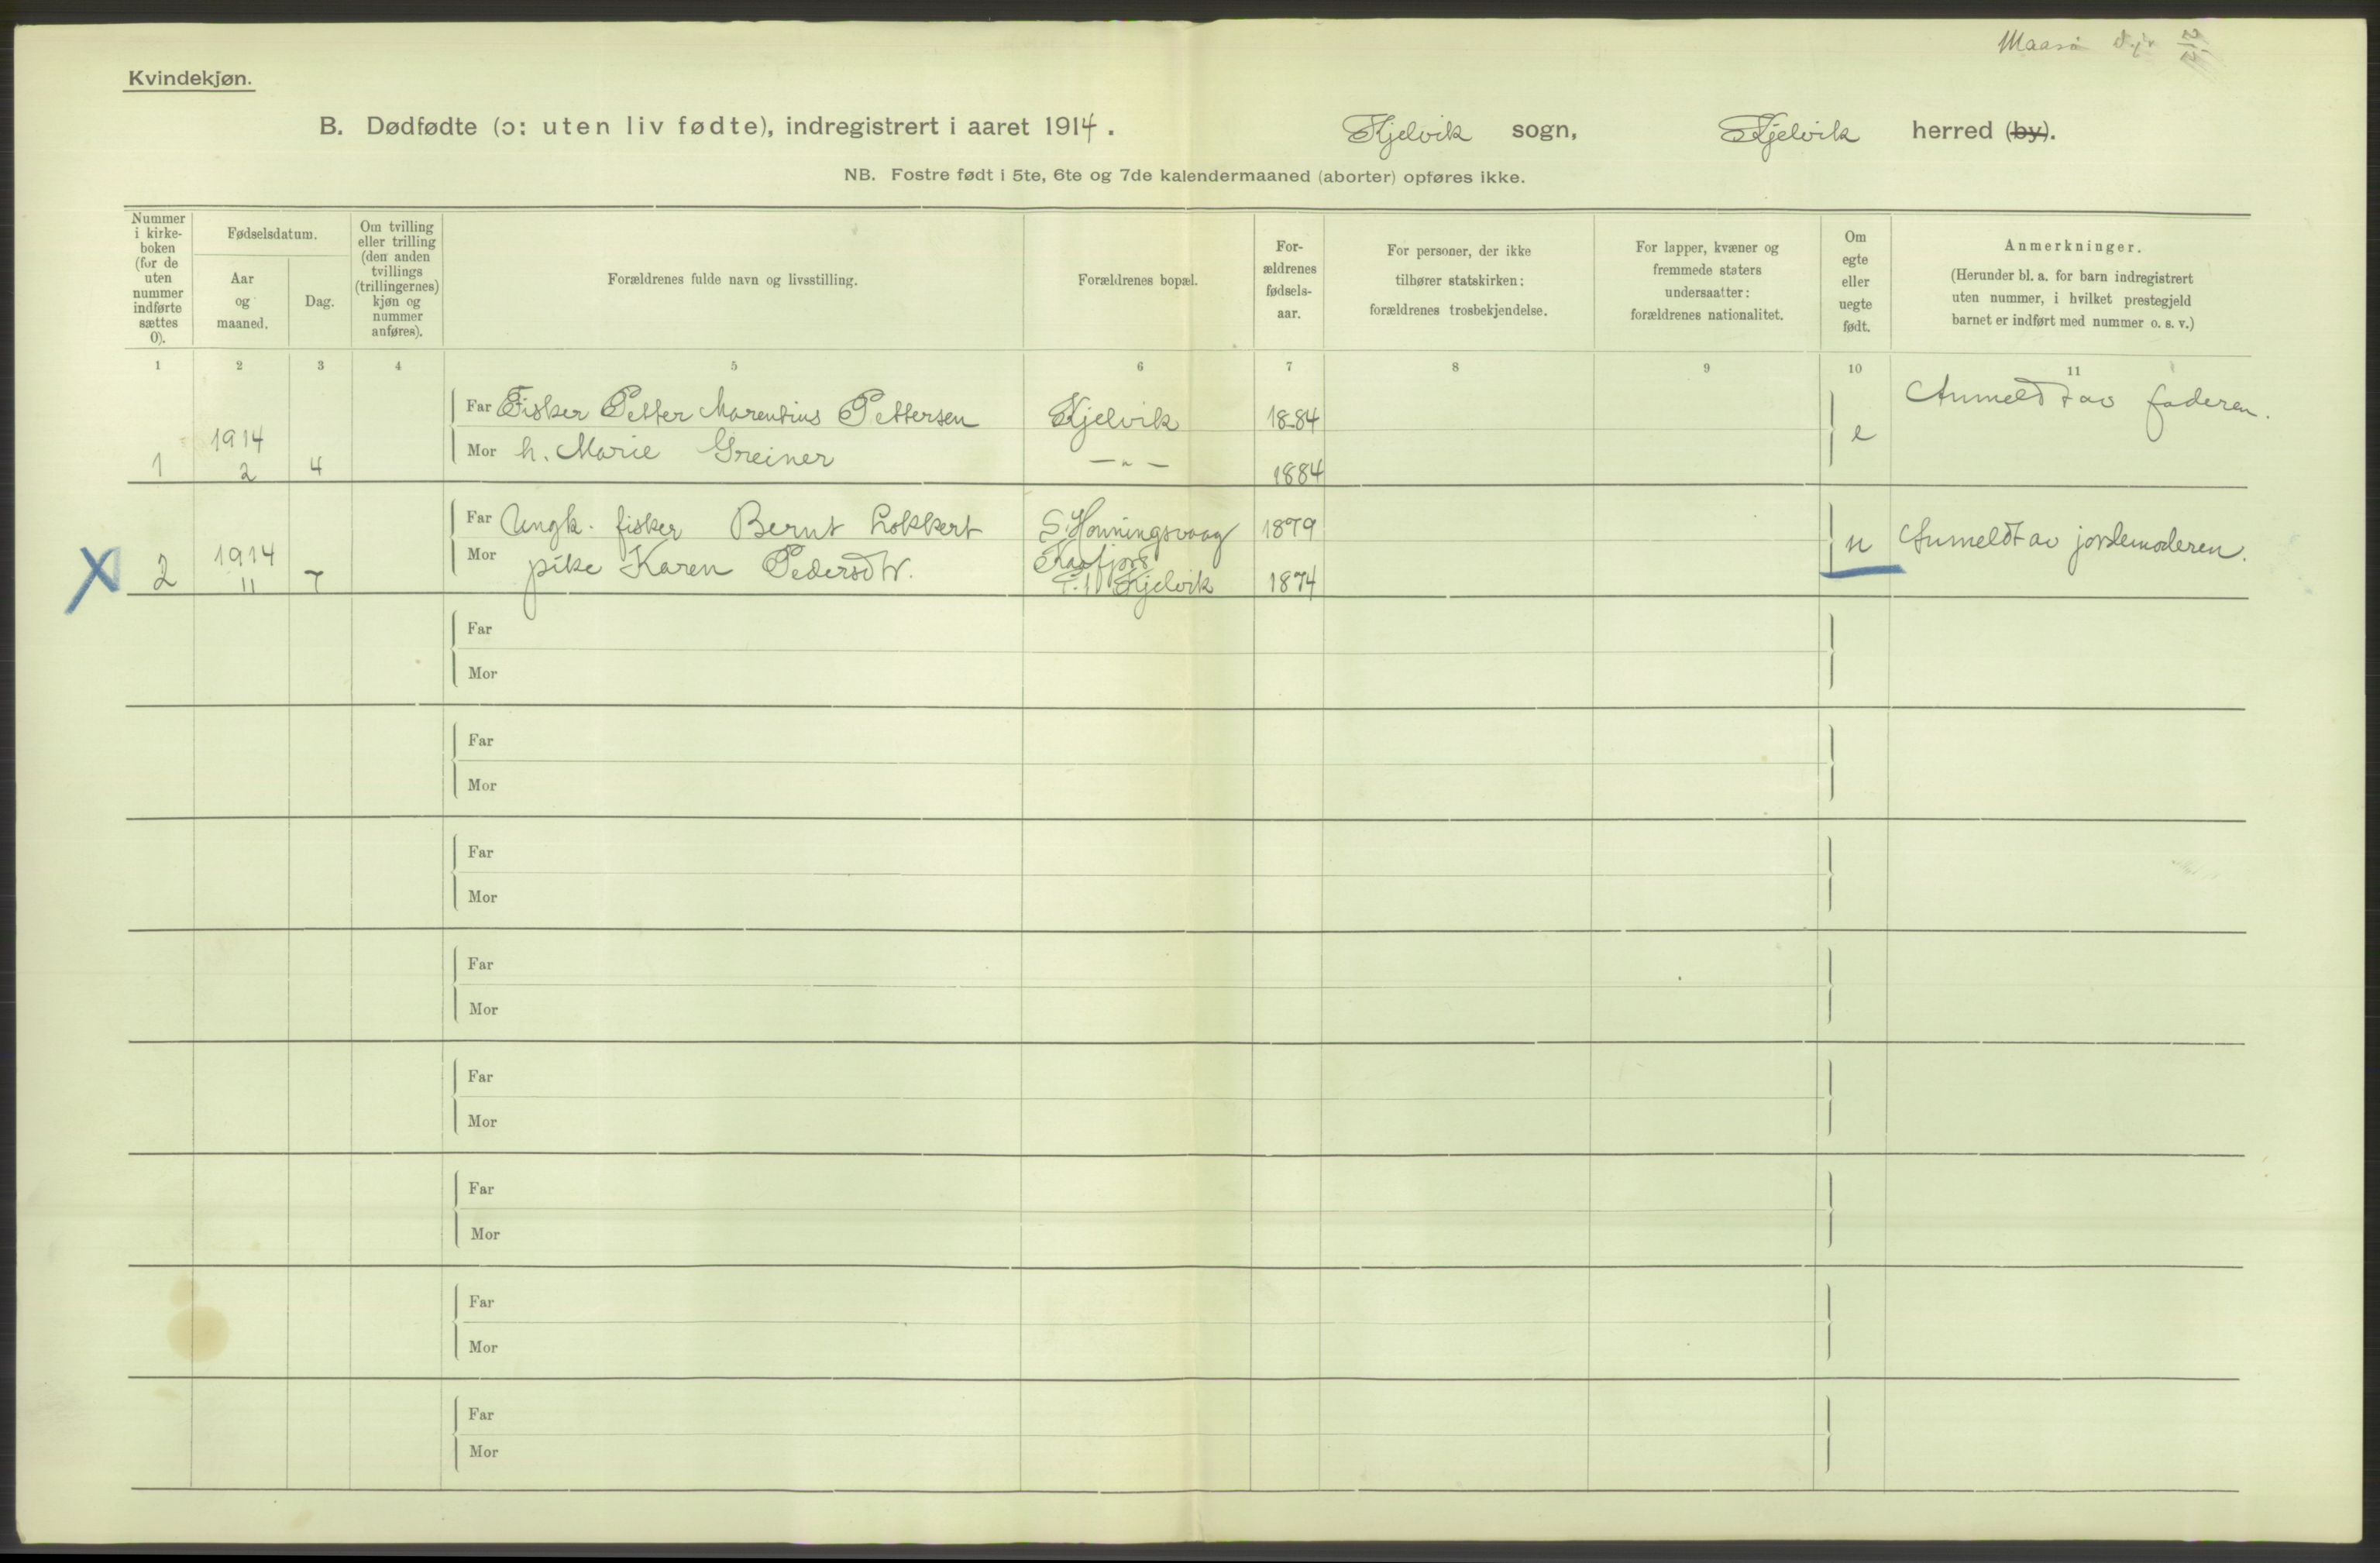 Maasø
Kvindekjøn.
B. Dødfødte (ɔ: uten liv fødte), indregistrert i aaret 1914. Kjelvik sogn, Kjelvik herred (by).
NB. Fostre født i 5te, 6te og 7de kalendermaaned (aborter) opføres ikke.
Nummer
i kirke-
boken
(for de
uten
nummer
indførte
sættes
0).
Fødselsdatum.
Aar
og
maaned.
Dag.
Om tvilling
eller trilling
(den anden
tvillings
(trillingernes)
kjøn og
nummer
anføres).
Forældrenes fulde navn og livsstilling.
Forældrenes bopæl.
For-
ældrenes
fødsels-
aar.
For personer, der ikke
tilhører statskirken:
forældrenes trosbekjendelse.
For lapper, kvæner og
fremmede staters
undersaatter:
forældrenes nationalitet.
Om
egte
eller
uegte
født.
Anmerkninger.
(Herunder bl. a. for barn indregistrert
uten nummer, i hvilket prestegjeld
barnet er indført med nummer o. s. v.)
1 2 3 4 5 6 7 8 9 10 11
Far Fisker Petter Marentius Pettersen Kjelvik 1884 Anmeldt av faderen.
1 1914 2 4 Mor h. Marie Greiner —„— 1884 e
Far Ungk. fisker Bernt Lokkert S. Honningsvaag 1879
X 2 1914 11 7 Mor pike Karen Pedersdtr. Kaafjord Kjelvik 1874 u Anmeldt av jordemoderen.
Far
Mor
Far
Mor
Far
Mor
Far
Mor
Far
Mor
Far
Mor
Far
Mor
Far
Mor